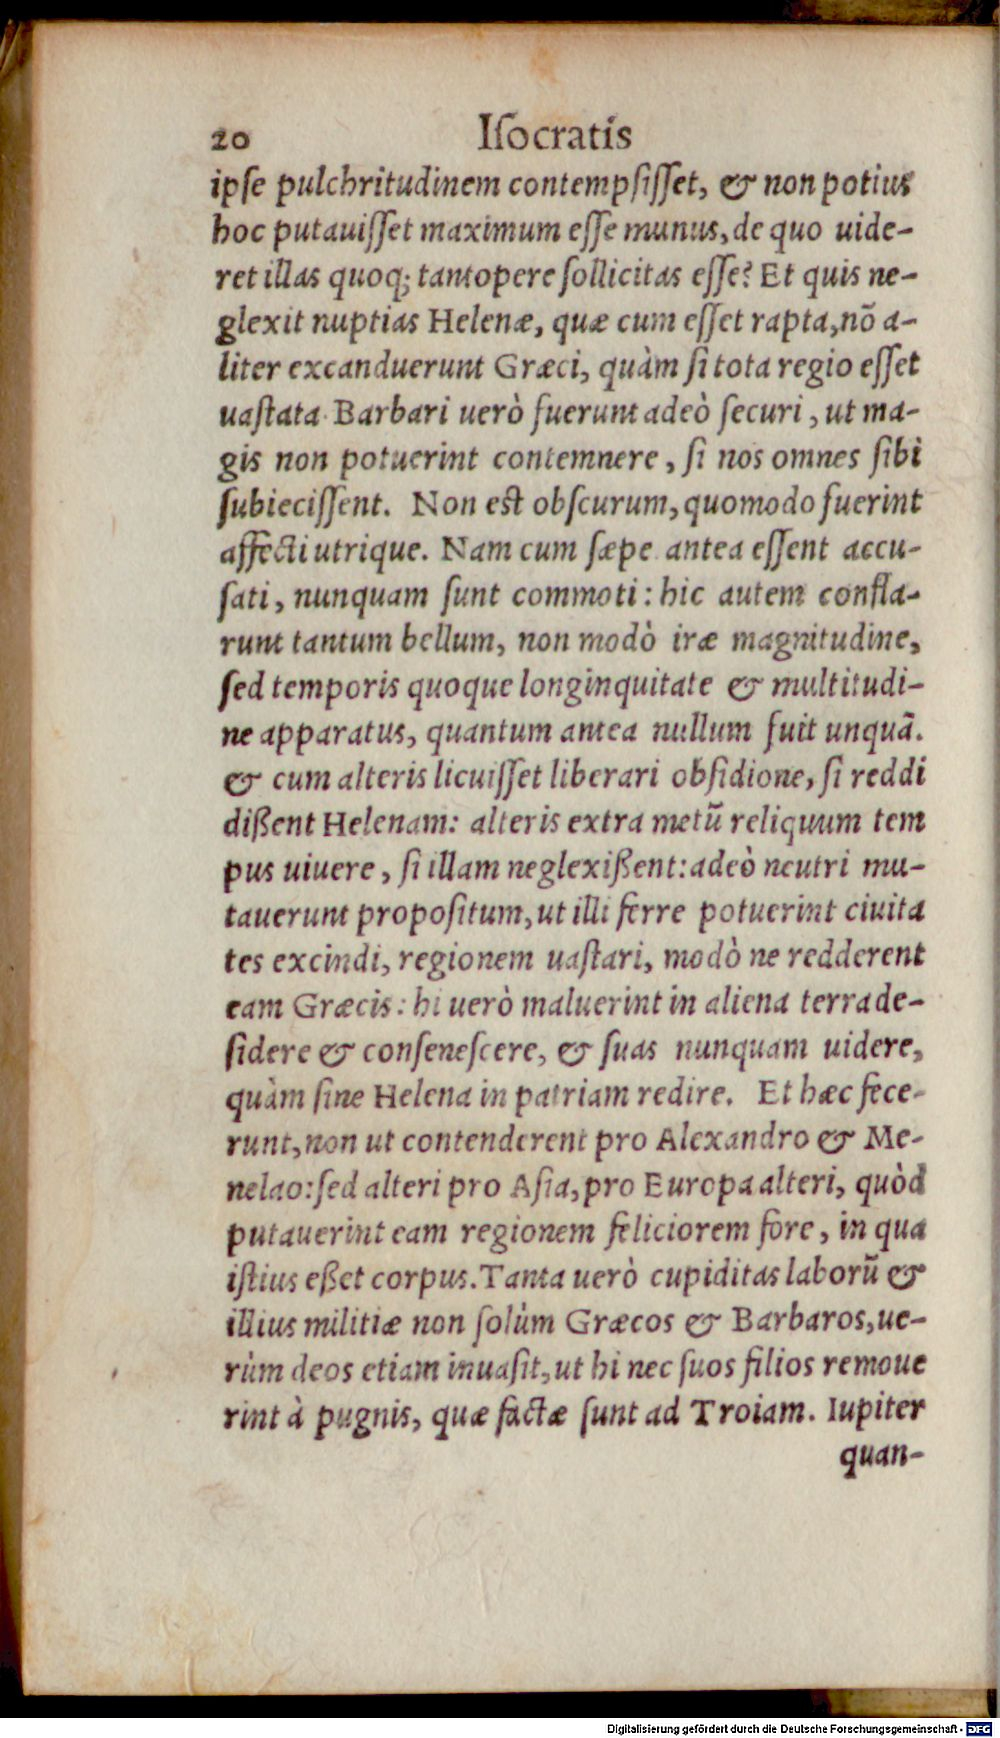 20 Iſocratis
ipſe pulchritudinem contempſiſſet, & non potius
hoc putauiſſet maximum eſſe munus, de quo uide-
ret illas quoq; tantopere ſollicitas eſſe? Et quis ne-
glexit nuptias Helenæ, quæ cum eſſet rapta, nõ a-
liter excanduerunt Græci, quàm ſi tota regio eſſet
uaſtata. Barbari uerò fuerunt adeò ſecuri, ut ma-
gis non potuerint contemnere, ſi nos omnes ſibi
ſubieciſſent. Non eſt obſcurum, quomodo fuerint
affecti utrique. Nam cum ſæpe antea eſſent accu-
ſati, nunquam ſunt commoti: hic autem confla-
runt tantum bellum, non modò iræ magnitudine,
ſed temporis quoque longinquitate & multitudi-
ne apparatus, quantum antea nullum fuit unquã.
& cum alteris licuiſſet liberari obſidione, ſi reddi
dißent Helenam: alteris extra metũ reliquum tem
pus uiuere, ſi illam neglexißent: adeò neutri mu-
tauerunt propoſitum, ut illi ferre potuerint ciuita
tes excindi, regionem uaſtari, modò ne redderent
eam Græcis: hi uerò maluerint in aliena terra de-
ſidere & conſeneſcere, & ſuas nunquam uidere,
quàm ſine Helena in patriam redire. Et hæc fece-
runt, non ut contenderent pro Alexandro & Me-
nelao: ſed alteri pro Aſia, pro Europa alteri, quòd
putauerint eam regionem feliciorem fore, in qua
iſtius eßet corpus. Tanta uerò cupiditas laborũ &
illius militiæ non ſolùm Græcos & Barbaros, ue-
rùm deos etiam inuaſit, ut hi nec ſuos filios remoue
rint à pugnis, quæ factæ ſunt ad Troiam. Iupiter
quan-
Digitalisierung gefördert durch die Deutsche Forschungsgemeinschaft - DFG